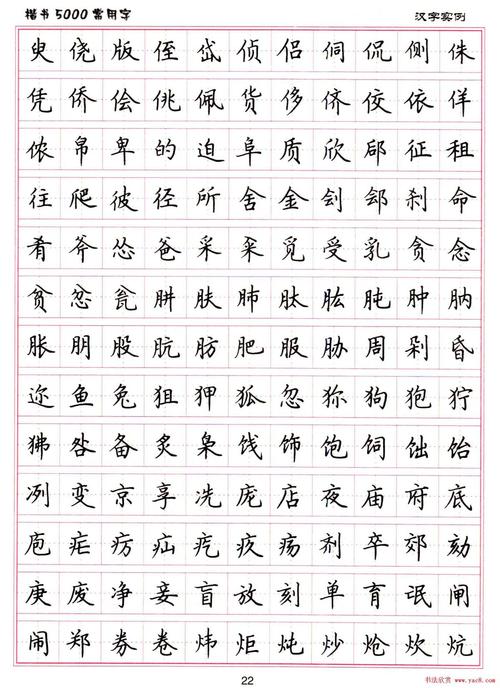 楷书5000常用字 汉字实例
臾侥版侄岱侦侣侗侃侧侏
凭侨侩佻佩货侈侪佼依佯
侬帛卑的迫阜质欣郈征徂
往爬彼径所舍金刽郐刹命
肴斧怂爸采采觅受乳贪念
贫忿瓮肼肤肺肽肱肫肿肭
胀朋股肮肪肥服胁周剁昏
迩鱼兔狙狎狐忽狝狗狍狞
狒咎备炙枭饯饰饱饲饳饴
冽变京享冼庞店夜庙府底
庖疟疠疝疙疚疡剂卒郊劾
庚废净妾盲放刻单育氓闸
闹郑券卷炜炬炖炒炝炊炕
22
书法欣赏
www.yac8.com